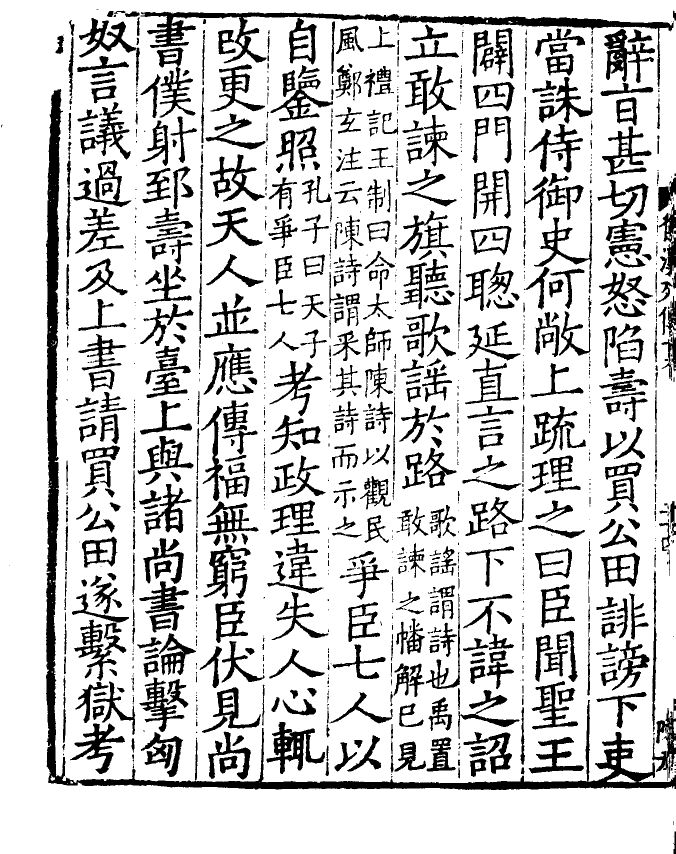 辭旨甚切憲怒陷壽以買公田誹謗下吏
當誅侍御史何敞上疏理之曰臣聞聖王
闢四門開四聰延直言之路下不諱之詔
立敢諫之旗聽歌謡於路歌謡謂詩也禹置敢諫之幡解已見
上禮記王制曰命太師陳詩以觀民風鄭玄注云陳詩謂采其詩而示之爭臣七人以
自鑒照孔子曰天子有爭臣七人考知政理違失人心輒
改更之故天人並應傳福無窮臣伏見尚
書僕射郅壽坐於臺上與諸尚書論擊匈
奴言議過差及上書請買公田遂繫獄考